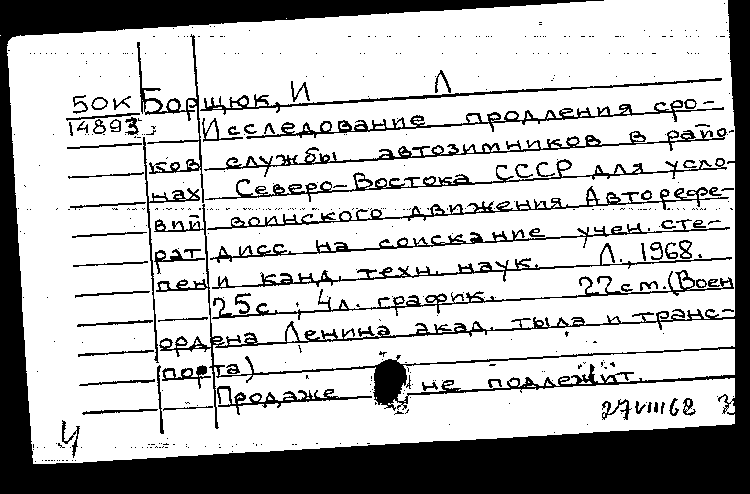 БОК Борщюк, И Л
14893 Исследование продления сро-
ков службы автозимников в райо-
нах Северо-Востока СССР для усло-
вий воинского движения. Авторефе-
рат дисс. на соискание учен. сте-
пени канд. техн. наук. Л., 1968.
25с.; 4л. график. 22см. (Воен
ордена Ленина акад. тыла и транс-
порта)
Продаже не подлежит.
27VIII68